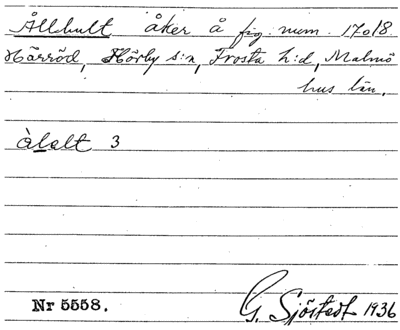 Ållhult åker å fig. num. 17018.
Härröd, Hörby s:n, Frosta h:d, Malmö
hus län.
àlalt 3
Nr 5558.
G. Sjöstedt 1936